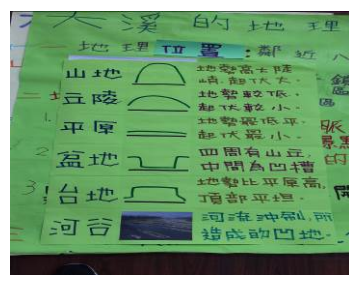 大溪的地理
一 地理位置:鄰近八
山地 地勢高土陸
崎起伏大.
丘陵 地勢較低.
起伏較小.
平原 地勢最低平.
起伏最小.
盆地 四周有山丘.
中間為凹槽
台地 地勢比平原高,
頂部平坦.
河谷 河流沖刷,所
造成的凹地.